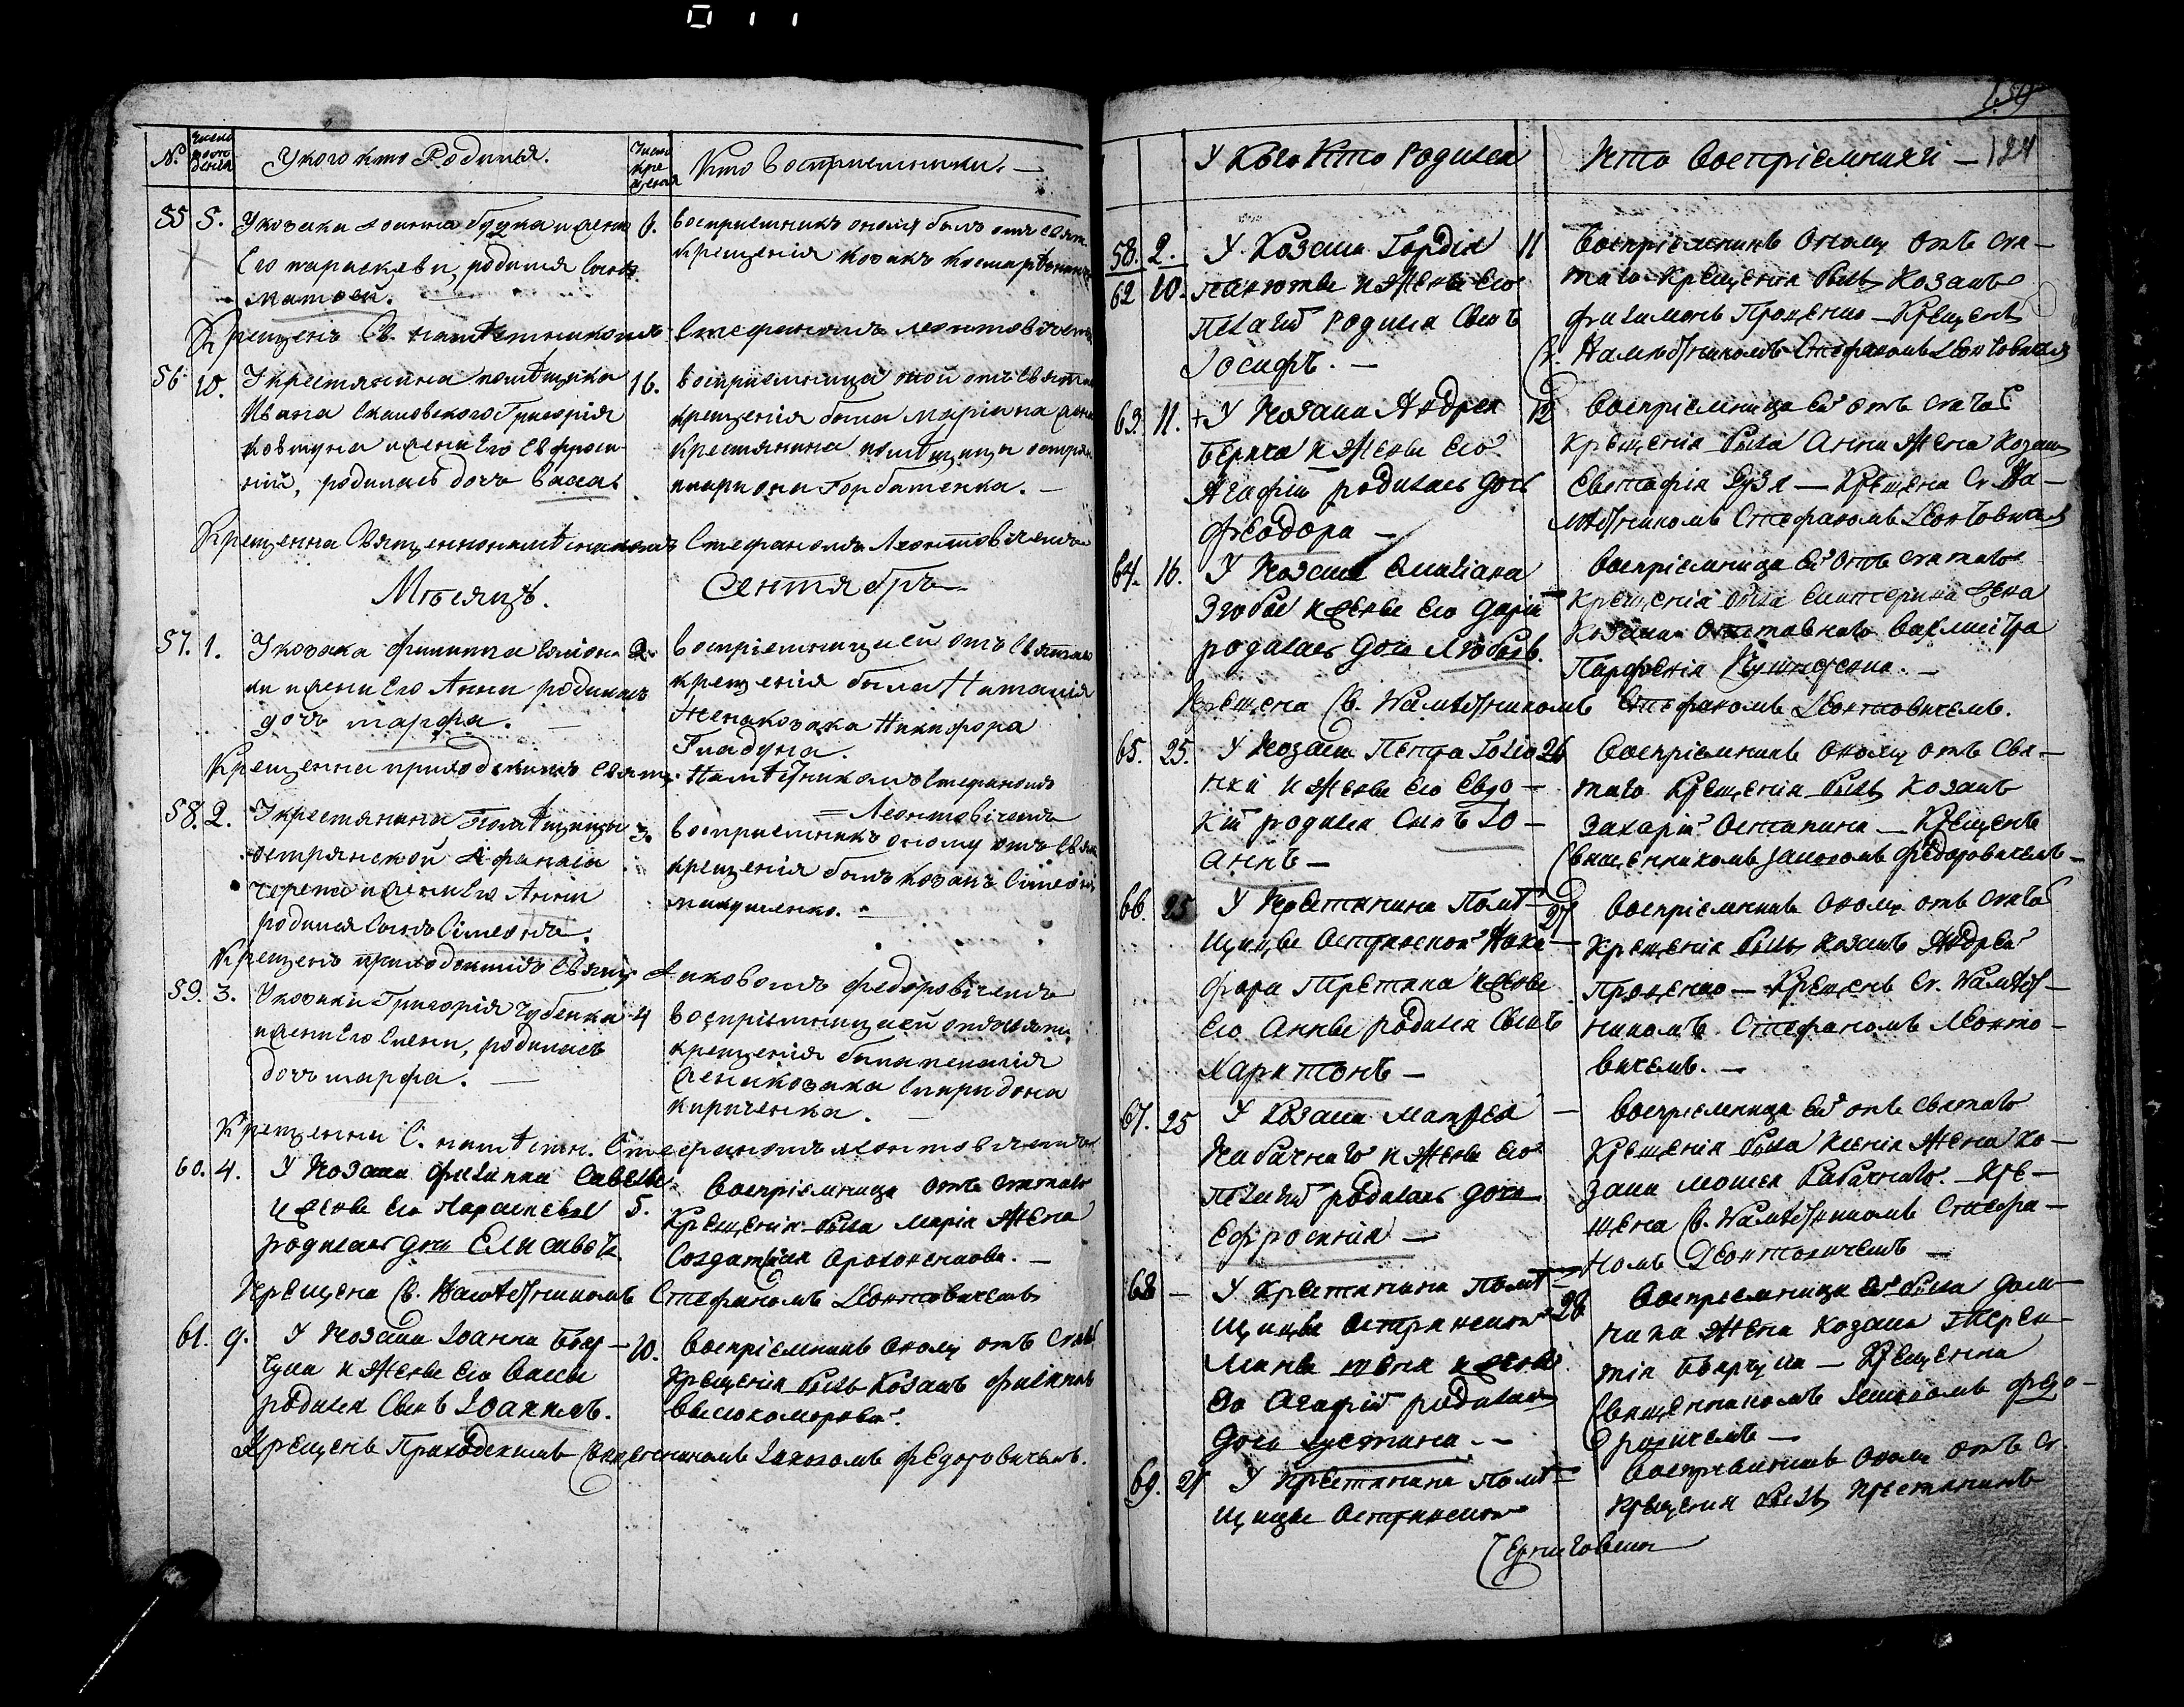 №
Число рождения
У кого кто Родился.
Число крещения
Кто восприемники. —
55 5. У козака Іоанна и жени
Его параскеви, родился синъ
матфей.
6. восприемникъ оному былъ отъ свят.
крещенія козакъ
Крещенъ Св. намѣстникомъ Стефаномъ Леонтовичемъ
56 10. У крестянина помѣщика
Ивана Григорія
и жени Его Евфроси-
ніи, родилась дочь Васса
16. восприемница оной отъ святаго
крещенія была маріина жена
крестянина помѣщици
иларіона Горбатенка. —
Крещенна Священнонамѣстникомъ Стефаномъ Леонтовичемъ
Мѣсяцъ. Сентябръ
57. 1. У козака Филиппа
и жени Его Анни родилась
дочь марфа. —
2. воспріемница ей отъ Святаго
крещенія была Наталія
Жена козака Никифора
Гладуна.
Крещенна приходскимъ свящ. Намѣстникомъ Стефаномъ
= Леонтовичемъ
58. 2. У крестянина Помѣщици
острянской Афанасія
и жени Его Анни
родился синъ Симеонъ.
3. восприемникъ оному отъ Свят.
крещенія былъ козакъ Симеонъ
микушенко. —
Крещенъ приходскимъ Свящ. Іаковомъ Федоровичемъ
59. 3. У козака Григорія Чубенка
и жени Его Елени, родилась
дочь марфа. —
4 воспріемница ей отъ святаго
крещенія была пелагія
жена козака Спиридона
кириченка. —
Крещенна С. намѣстн. Стефаномъ Леонтовичемъ
60. 4. У Козака Филиппа
и жены его Параскевы
родилась дочь Елисаветъ
5. Воспріемница отъ святаго
Крещенія была Марія Жена
Солдатская
Крещена С. Намѣстникомъ Стефаномъ Леонтовичемъ
61. 9. У Козака Іоанна
и Жены его Вассы
родился Сынъ Іоаннъ.
10. Воспріемникъ оному отъ Святаго
Крещенія былъ Козакъ Филиппъ
Высокоморный.
Крещенъ Приходскимъ Священникомъ Іаковомъ Федоровичемъ.
124
У Кого Кто Родился
Кто Воспріемники —
58. 2.
62 10. У Козака Гордія
и Жены его
Пелагіи Родился Сынъ
Іосифъ. —
11 Воспріемникъ Оному отъ свя-
таго Крещенія былъ Козакъ
Филимонъ Проценко — Крещенъ
С. Намѣстникомъ Стефаномъ Леонтовичемъ
63. 11. + У Козака Андрея
и Жены его
Агафіи родилась Дочь
Феодора —
12 Воспріемница ей отъ святаго
Крещенія была Анна Жена Козака
Евстафія — Крещена Св. На-
мѣстникомъ Стефаномъ Леонтовичемъ
64. 16. У Козака Емиліана
и жены его Даріи
родилась Дочь Любовь.
— Воспріемница ей отъ святаго
Крещенія была Екатерина жена
Козака Отставнаго Вахмистра
Парфенія —
Крещена С. Намѣстникомъ Стефаномъ Леонтовичемъ.
65. 25. У Козака Петра
и Жены его Евдо-
кіи родился Сынъ Іо-
аннъ —
26 Воспріемникъ Оному отъ Свя-
таго Крещенія былъ Козакъ
Захарій — Крещенъ
Священникомъ Іаковомъ Федоровичемъ —
66. 25 У Крестянина Помѣ-
щицы Острянской Ники-
фора Третяка и жены
его Анны родился Сынъ
Харитонъ —
27 Воспріемникъ Оному отъ святаго
Крещенія былъ Козакъ Андрей
Проценко — Крещенъ Св. Намѣст-
никомъ Стефаномъ Леонто-
вичемъ. —
67. 25 У Козака Матфея
Кабачнаго и Жены его
Пелагіи родилась дочь
Ефросинія —
— Воспріемница ей отъ Святаго
Крещенія была Ксенія Жена Ко-
зака Моисея Кабачнаго. — Кре-
щена С. Намѣстникомъ Стефа-
номъ Леонтовичемъ —
68 — У Крестянина Помѣ-
щицы Острянской
и жены
Его Агафіи родилась
Дочь Іустина. —
28 Воспріемница ей была Дом-
ника Жена Козака Терен-
тія — Крещенна
Священникомъ Іаковомъ Федо-
ровичемъ —
69. 27 У Крестянина Помѣ-
щицы Острянской
Воспріемникъ Оному отъ Св.
Крещенія былъ Крестянинъ